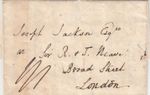 Joseph Jackson Esqr
at Sir R. & T. Neave
Broad Street
London